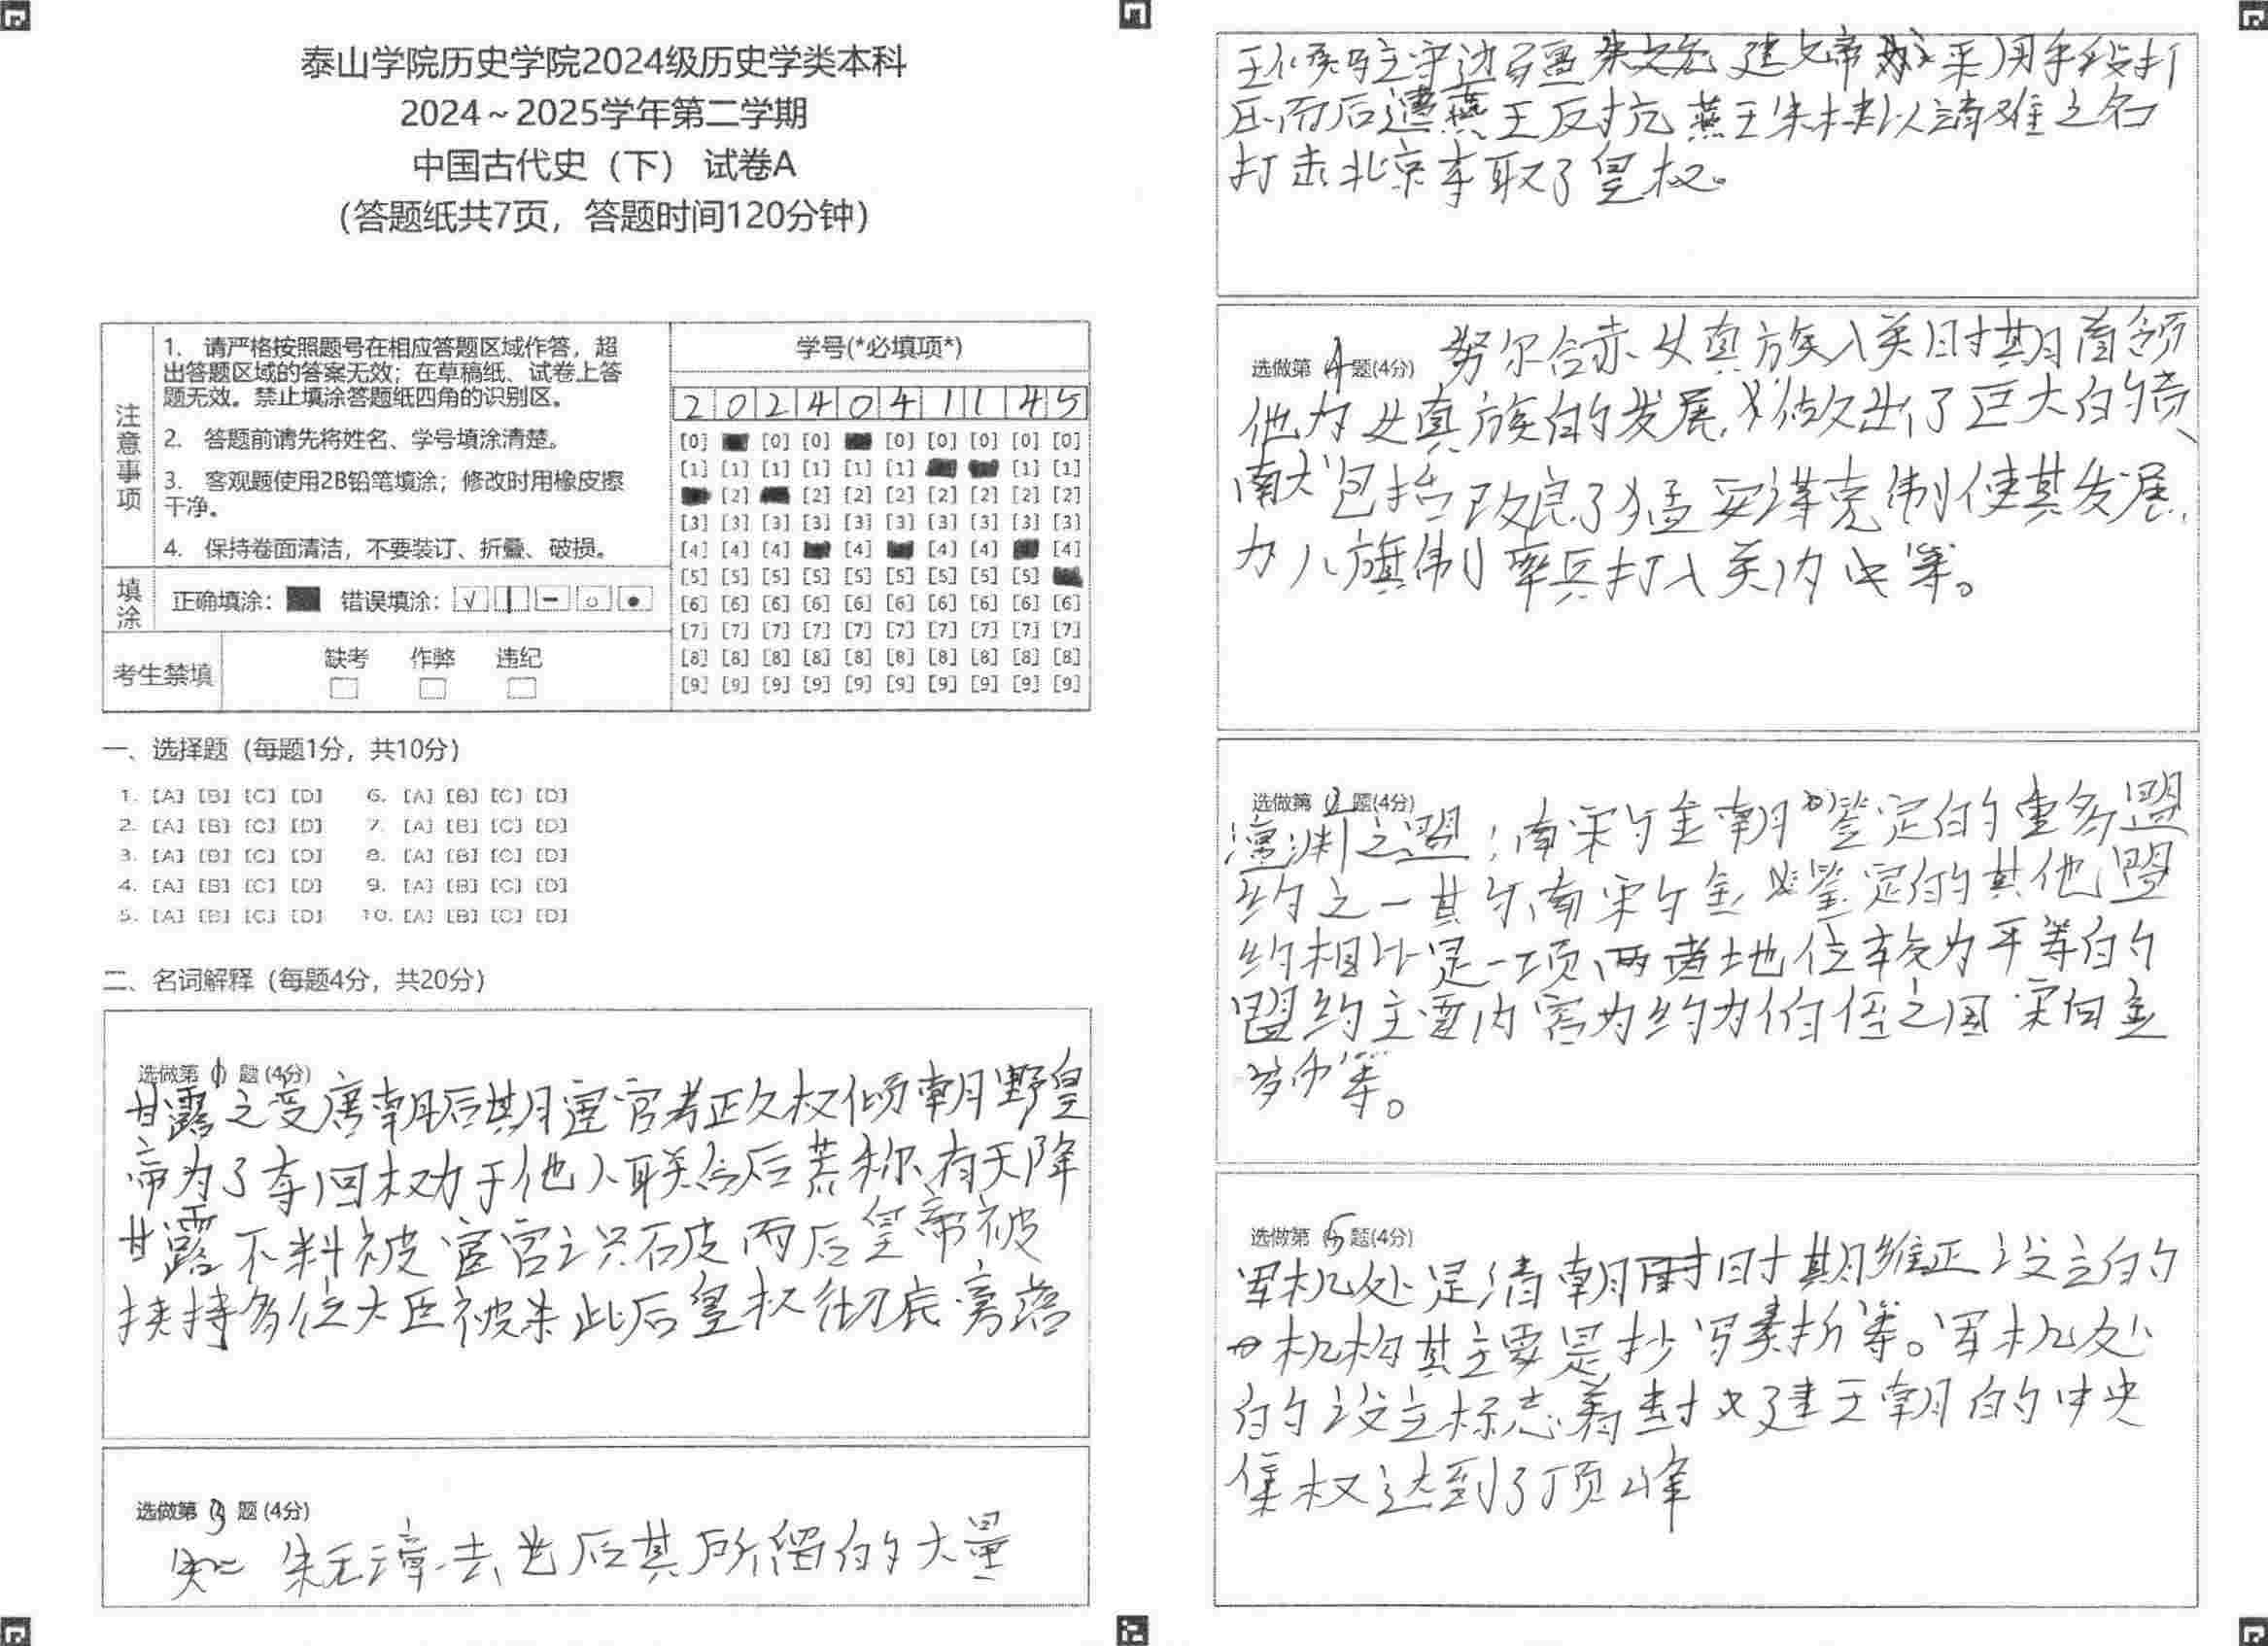 泰山学院历史学院2024级历史学类本科
2024～2025学年第二学期
中国古代史（下） 试卷A
（答题纸共7页，答题时间120分钟）
注意事项
1. 请严格按照题号在相应答题区域作答，超
出答题区域的答案无效；在草稿纸、试卷上答
题无效。禁止填涂答题纸四角的识别区。
2. 答题前请先将姓名、学号填涂清楚。
3. 客观题使用2B铅笔填涂；修改时用橡皮擦
干净。
4. 保持卷面清洁，不要装订、折叠、破损。
填涂
正确填涂： 错误填涂：
考生禁填
缺考 作弊 违纪
学号(*必填项*)
2 0 2 4 0 4 1 1 4 5
[0] [0] [0] [0] [0] [0] [0] [0]
[1] [1] [1] [1] [1] [1] [1] [1]
[2] [2] [2] [2] [2] [2] [2] [2]
[3] [3] [3] [3] [3] [3] [3] [3] [3] [3]
[4] [4] [4] [4] [4] [4] [4]
[5] [5] [5] [5] [5] [5] [5] [5] [5]
[6] [6] [6] [6] [6] [6] [6] [6] [6] [6]
[7] [7] [7] [7] [7] [7] [7] [7] [7] [7]
[8] [8] [8] [8] [8] [8] [8] [8] [8] [8]
[9] [9] [9] [9] [9] [9] [9] [9] [9] [9]
一、选择题（每题1分，共10分）
1. [A] [B] [C] [D] 6. [A] [B] [C] [D]
2. [A] [B] [C] [D] 7. [A] [B] [C] [D]
3. [A] [B] [C] [D] 8. [A] [B] [C] [D]
4. [A] [B] [C] [D] 9. [A] [B] [C] [D]
5. [A] [B] [C] [D] 10. [A] [B] [C] [D]
二、名词解释（每题4分，共20分）
选做第（1）题(4分)
甘露之变唐朝后期宦官专政权倾朝野皇
帝为了夺回权力于他人联合后荒称有天降
甘露不料被宦官识破而后皇帝被
挟持多位大臣被杀此后皇权彻底旁落
选做第（3）题(4分)
朱元璋去世后其所留的大量
王侯驻守边疆 建文帝采用手段打
压而后遭燕王反抗燕王朱棣以靖难之名
打击北京夺取了皇权。
选做第（4）题(4分) 努尔哈赤女真族入关时期首领
他为女真族的发展做出了巨大的贡
献包括改良了猛安谋克制使其发展
为八旗制率兵打入关内等。
选做第（2）题(4分)
澶渊之盟：南宋与金朝签定的重多盟
约之一其与南宋与金签定的其他盟
约相比是一项两者地位较为平等的
盟约主要内容为约为伯侄之国宋向金
岁币等。
选做第（5）题(4分)
军机处是清朝时期雍正设立的
机构其主要是抄写奏折等。军机处
的设立标志着封建王朝的中央
集权达到了顶峰